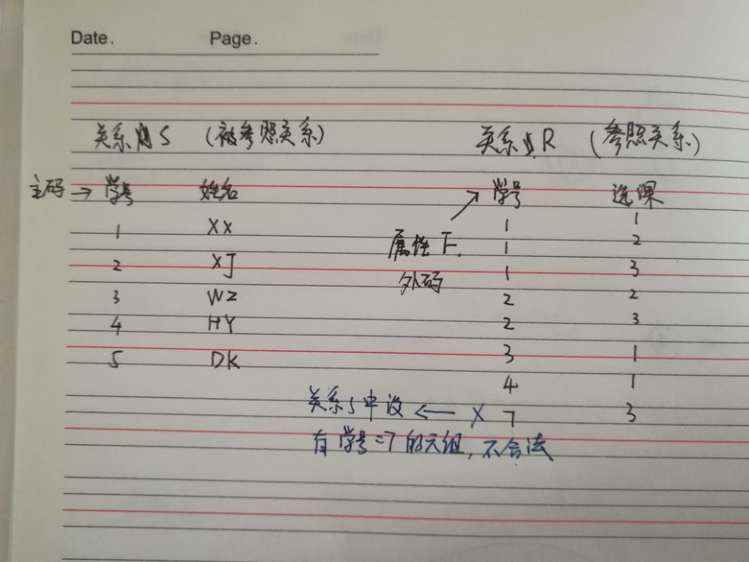 Date. Page.
关系S (被参照关系) 关系R (参照关系)
主码→ 学号 姓名 学号 选课
1 XX 1 1
属性F, 1 2
2 XJ 外码 1 3
3 WZ 2 2
4 HY 2 3
5 DK 3 1
4 1
关系S中没 ← X 7 3
有学号=7的元组, 不合法